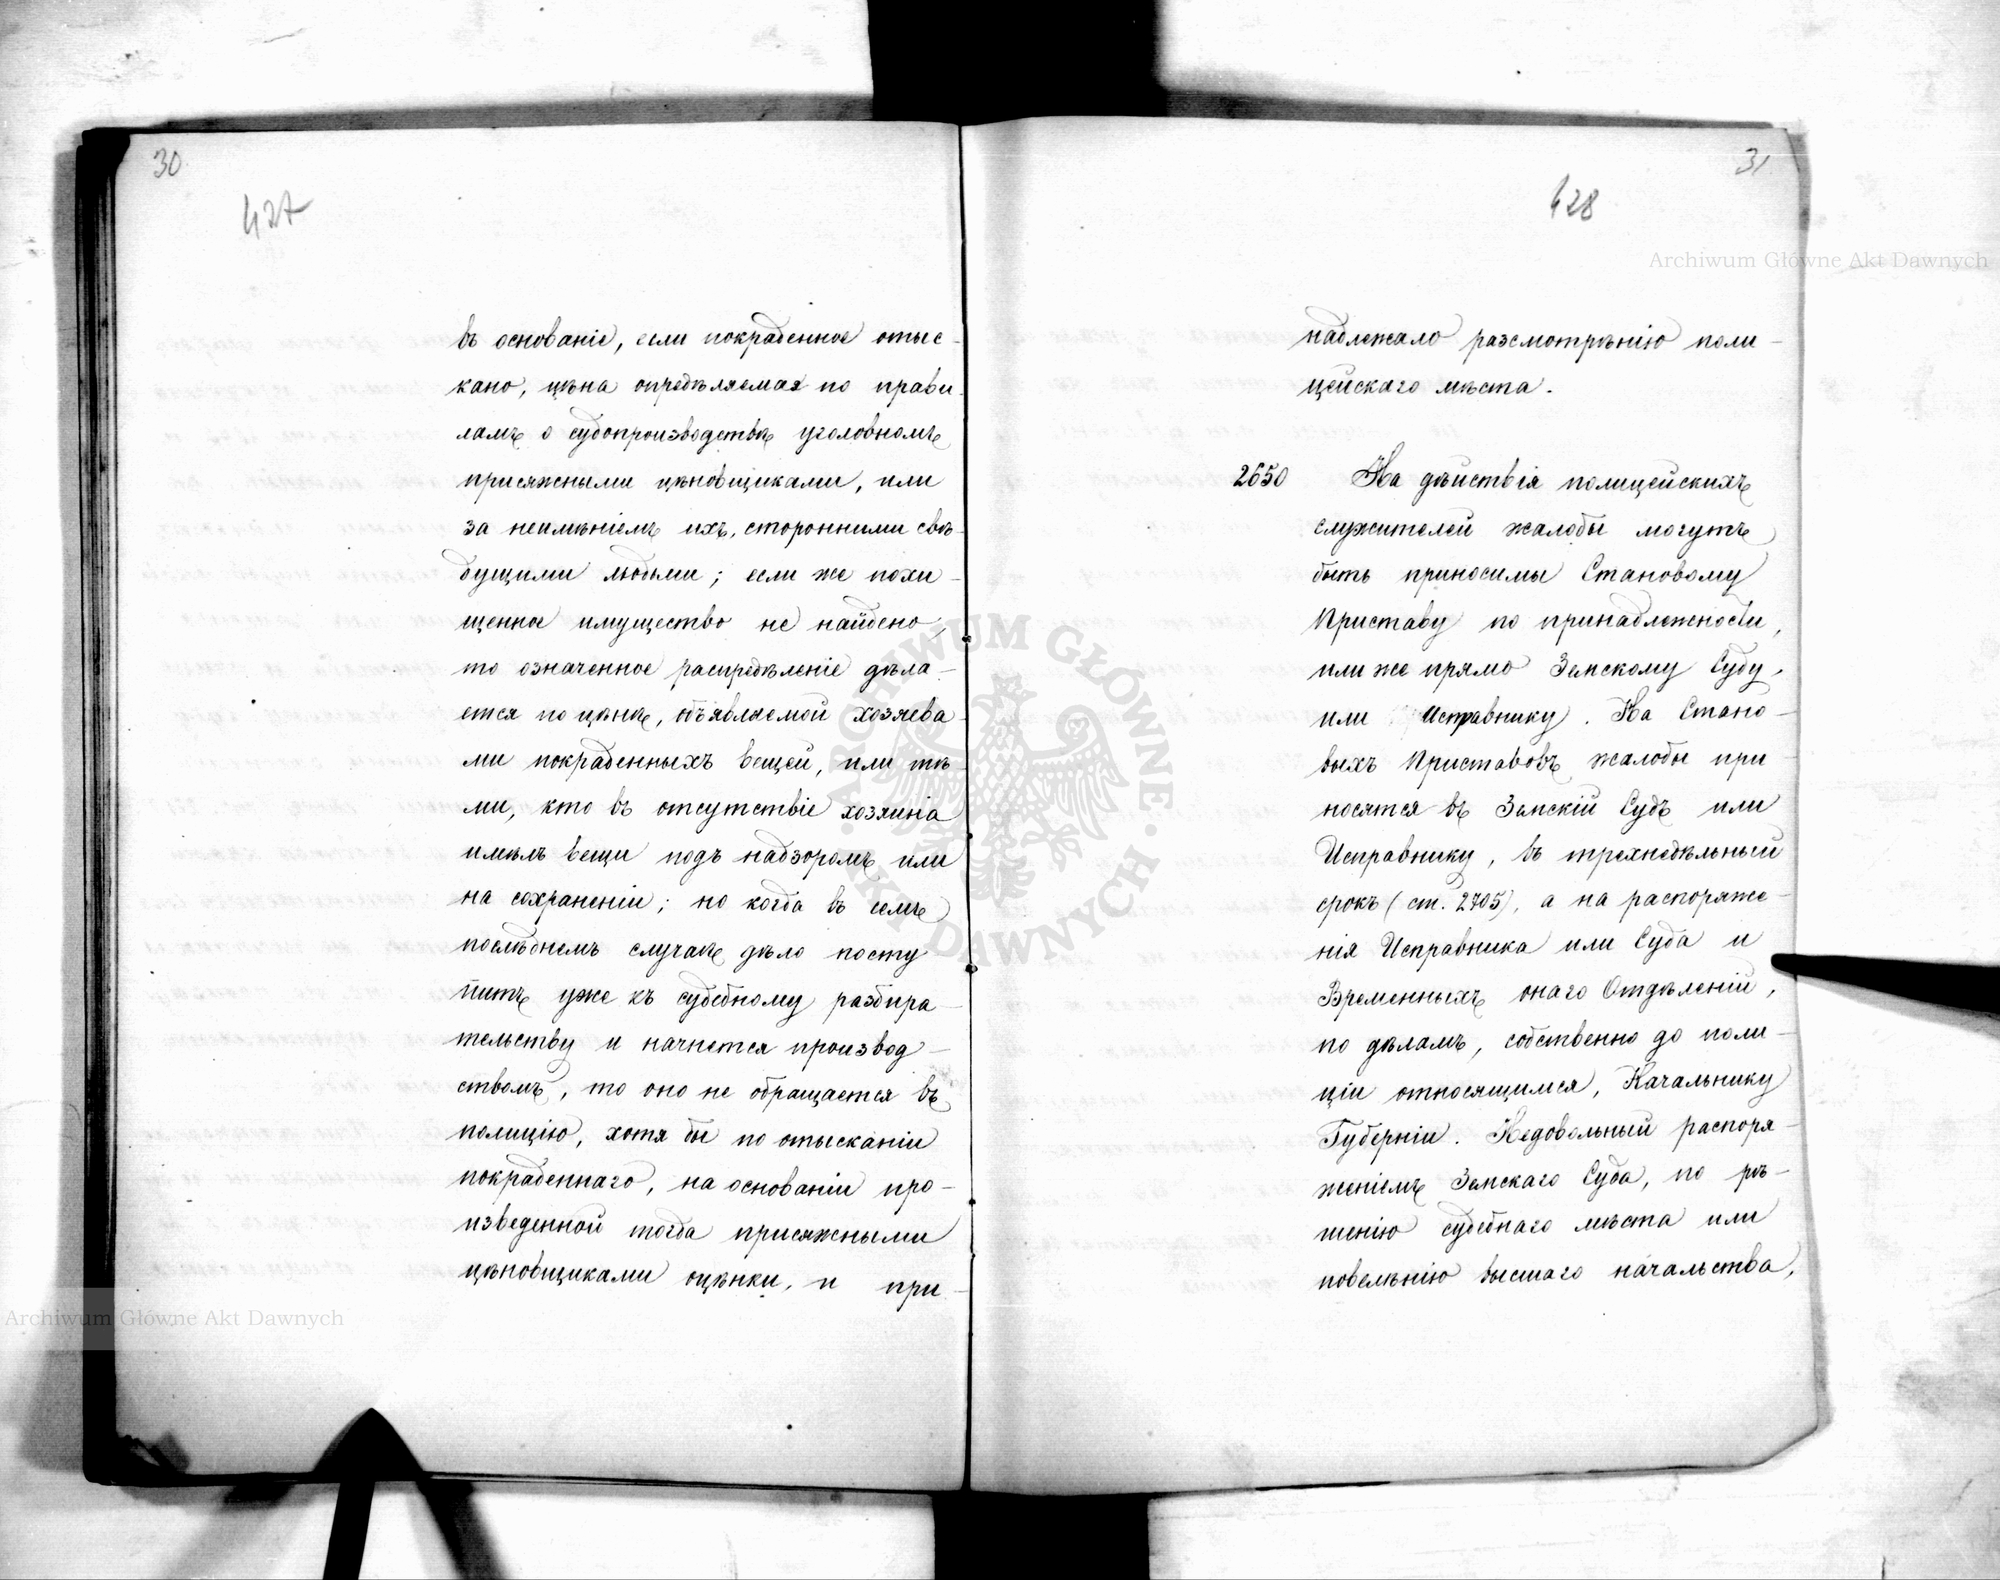 30
427
въ основаніе, если покраденное отыс-
кано, цѣна опредѣляемая по прави-
ламъ о судопроизводствѣ уголовномъ
присяжными цѣновщиками, или
за неимѣніемъ ихъ, сторонними свѣ-
дущими людьми; если же похи-
щенное имущество не найдено,
то означенное распредѣленіе дѣла-
ется по цѣнѣ, объявляемой хозяева-
ми покраденныхъ вещей, или тѣ-
ми, кто въ отсутствіе хозяина
имѣлъ вещи подъ надзоромъ или
на сохраненіи; но когда въ семъ
послѣднемъ случаѣ дѣло посту
питъ уже къ судебному разбира-
тельству и начнется производ-
ствомъ, то оно не обращается въ
полицію, хотя бы по отысканіи
покраденнаго, на основаніи про-
изведенной тогда присяжными
цѣновщиками оцѣнки, и при-
31
428
надлежало разсмотрѣнію поли-
цейскаго мѣста.
2650 На дѣйствія полицейскихъ
служителей жалобы могутъ
быть приносимы Становому
Приставу по принадлежности,
или же прямо Земскому Суду,
или Исправнику. На Стано-
выхъ Приставовъ жалобы при-
носятся въ Земскій Судъ или
Исправнику, въ трехнедѣльный
срокъ (ст. 2705), а на распоряже-
нія Исправника или Суда и
Временныхъ онаго Отдѣленій,
по дѣламъ, собственно до поли-
ціи относящимся, Начальнику
Губерніи. Недовольный распоря-
женіемъ Земскаго Суда, по рѣ-
шенію судебнаго мѣста или
повелѣнію высшаго начальства,
Archiwum Główne Akt Dawnych
ARCHIWUM GŁÓWNE · AKT DAWNYCH ·
Archiwum Główne Akt Dawnych